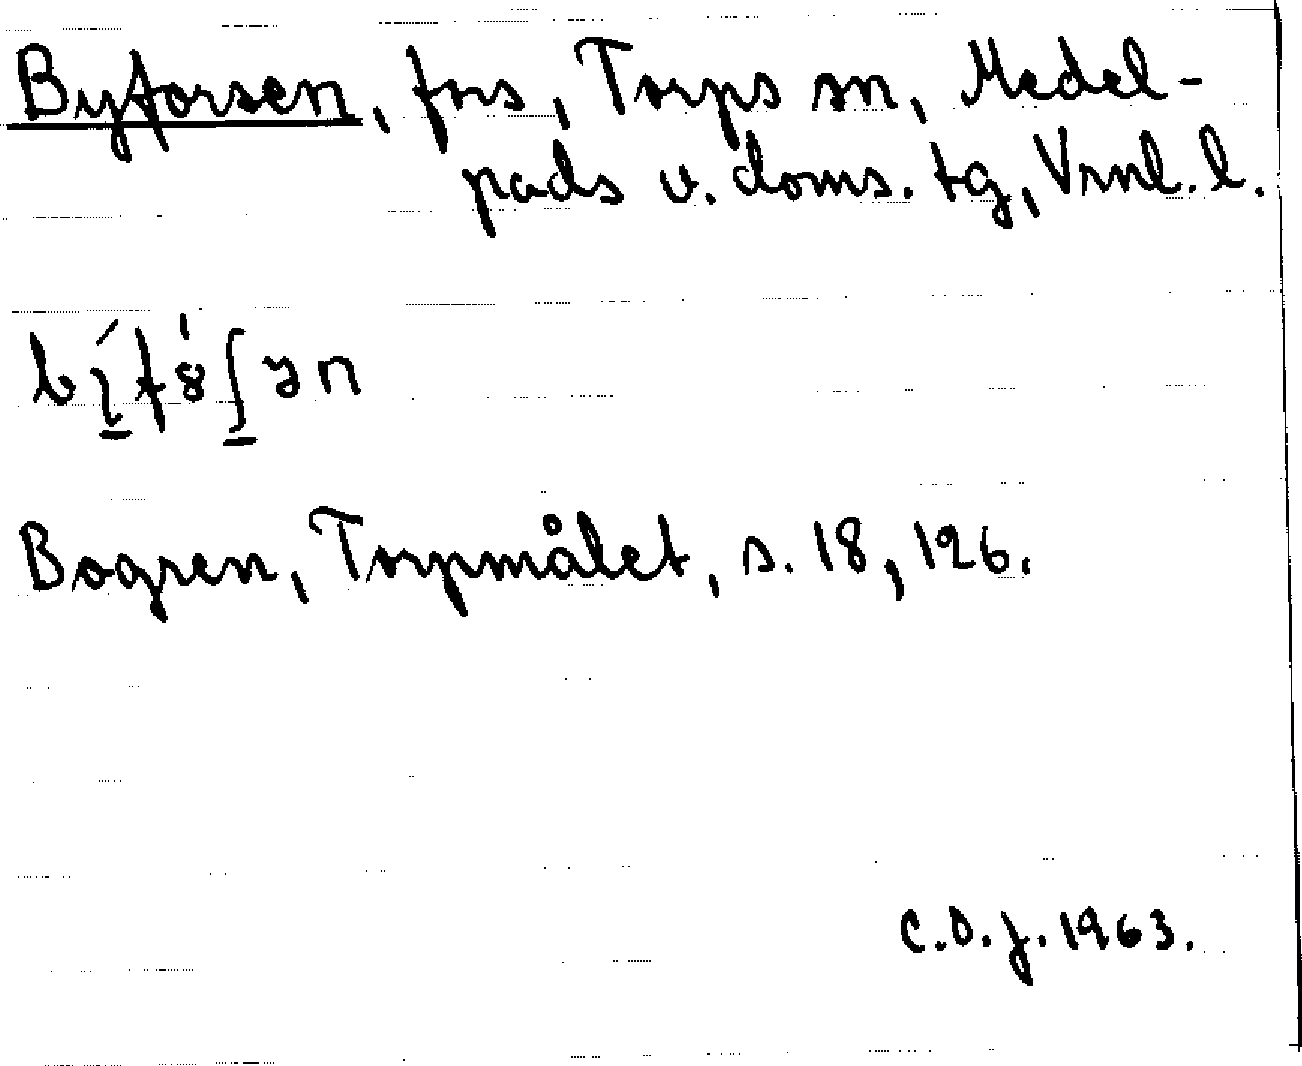 Byforsen, fors, Torps sn, Medel-
pads v. doms. tg, Vrnl. l.
Bogren, Torpmålet, s. 18, 126.
C.O.J. 1963.